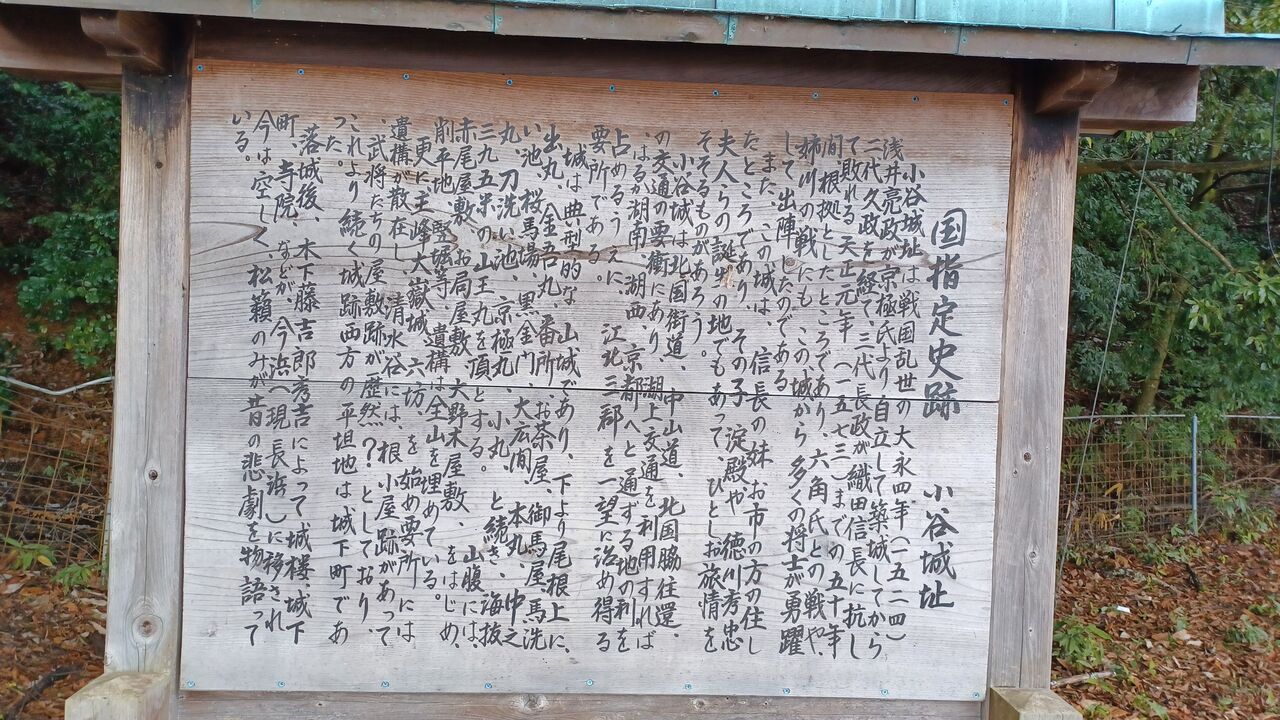 国指定史跡　小谷城址
小谷城址は戦国乱世の大永四年(一五二四)
浅井亮政が京極氏より自立して築城してから
二代久政を経て、三代長政が織田信長に抗し
て敗れる天正元年(一五七三)までの五十年
間、根拠としたところであり、六角氏との戦や、
姉川の戦にも、この城から多くの将士が勇躍
して出陣したのである。
また、この城は、信長の妹、お市の方の住し
たところであり、その子、淀殿や、徳川秀忠
夫人らの誕生の地でもあって、ひとしお旅情を
そそるものがあろう。
小谷城は、北国街道、中山道、北国脇往還、
の交通の要衝にあり、湖上交通を利用すれば
はるか湖南、湖西、京都へと通ずる地の利を
占めるうえに、江北三郡を一望に治め得る
要所である。
城は、典型的な山城であり、下より尾根上に、
出丸、金吾丸、番所、お茶屋、御馬屋、馬洗
い池、桜馬場、黒金門、大広間、本丸、中之
丸、刀洗い池、京極丸、小丸、と続き、海抜
三九五米の山王丸を頂とする。山腹には、
赤尾屋敷、お局屋敷、大野木屋敷、をはじめ、
削平地、竪堀等、遺構は全山を埋めている。
更に、主峰大嶽城、六坊、を始め要所には
遺構が散在し、清水谷には、根小屋跡があって
、武将たちの屋敷跡が歴然?としており、
これより続く城跡西方の平坦地は城下町であ
った。
落城後、木下藤吉郎秀吉によって、城楼、城下
町、寺院、などが、今浜(現長浜)に移され
今は空しく、松籟のみが昔の悲劇を物語って
いる。